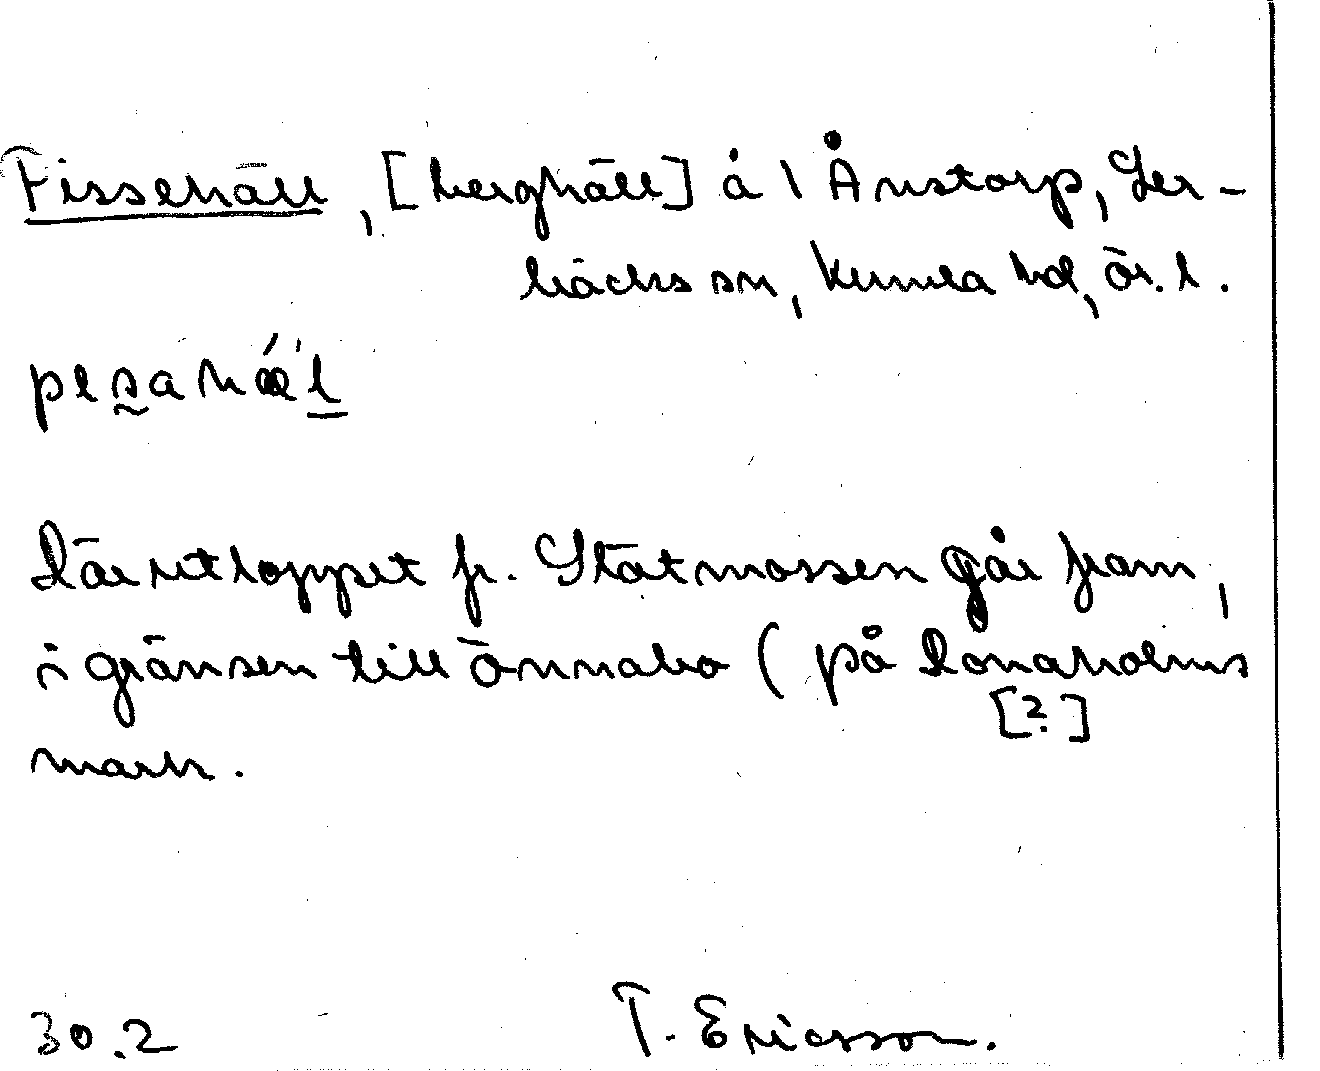 Fissehäll, [berghäll] å 1 Ånstorp, Ler-
bäcks sn, Kumla hd, ör. l.
Där utloppet fr. Slätmossen går fram,
i gränsen till Önnabo (på Lonaholms
[?]
mark.
30.2 T. Ericsson.